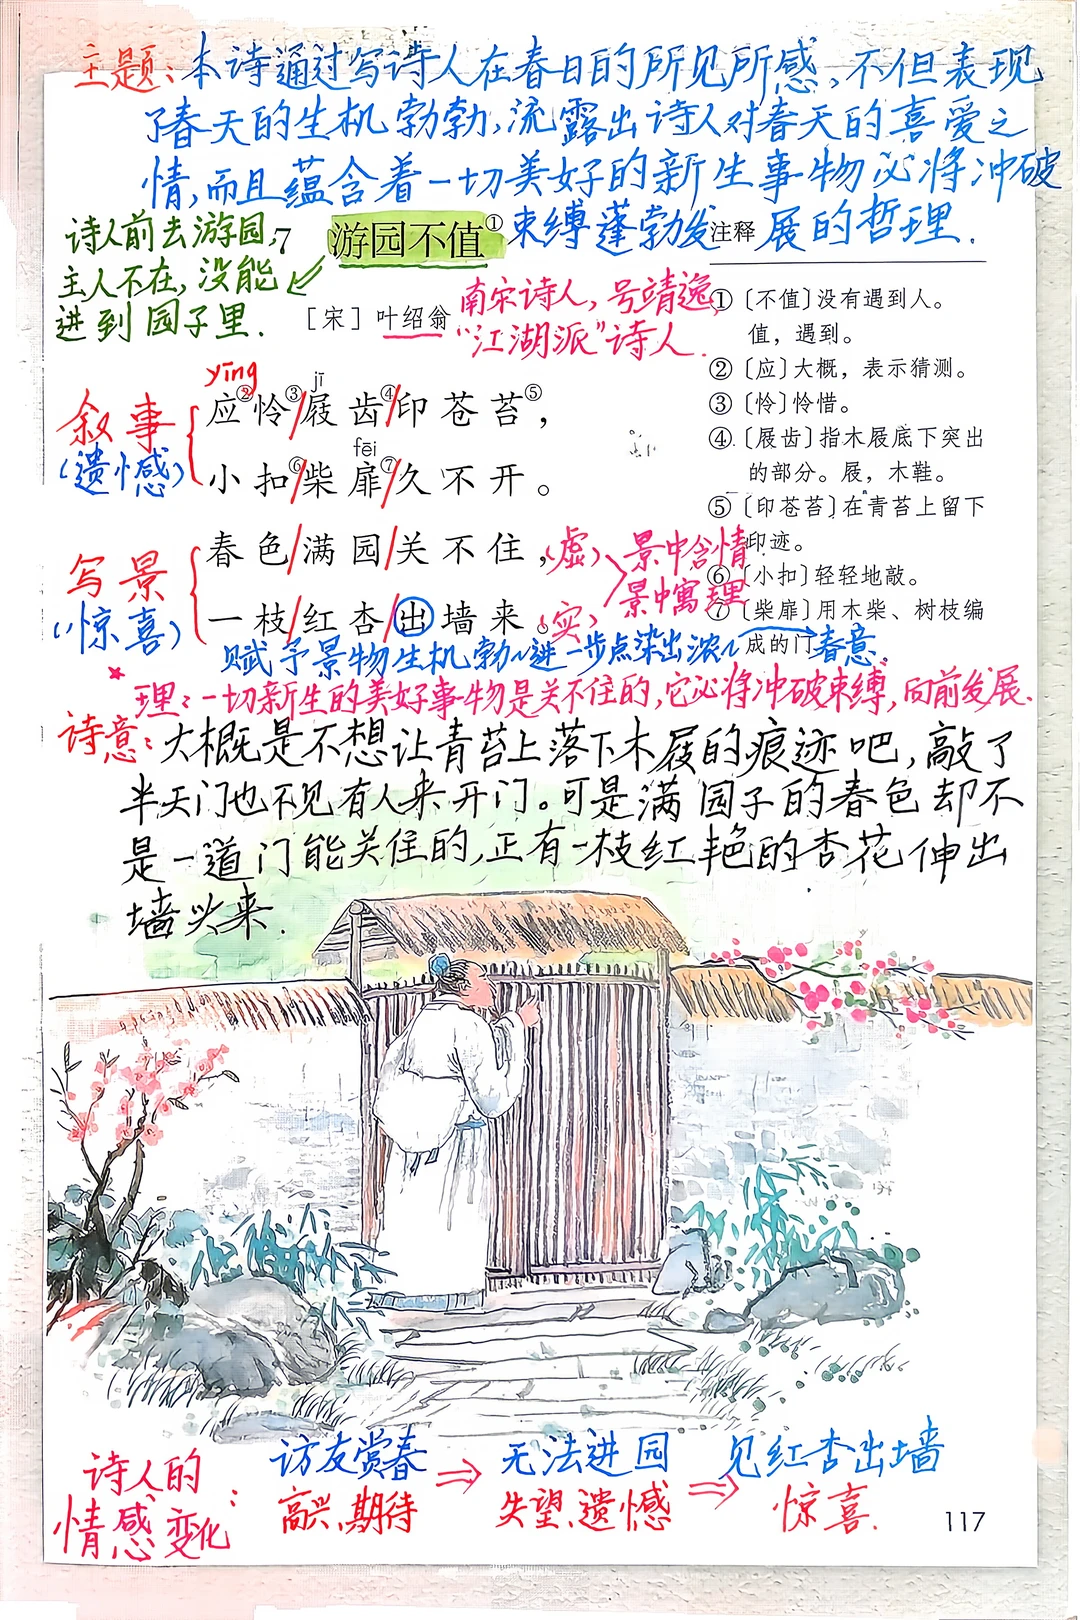 主题：本诗通过写诗人在春日的所见所感，不但表现
了春天的生机勃勃，流露出诗人对春天的喜爱之
情，而且蕴含着一切美好的新生事物必将冲破
束缚蓬勃发展的哲理.
诗人前去游园，
主人不在，没能
进到园子里.
7 游园不值①
［宋］叶绍翁
南宋诗人，号靖逸，
“江湖派”诗人.
yīng jī
应②怜③/屐齿④/印苍苔⑤，
fēi
小扣⑥/柴扉⑦/久不开。
叙事
(遗憾)
春色/满园/关不住，(虚)
一枝/红杏/出墙来。(实)
写景
(惊喜)
景中含情
景中寓理
赋予景物生机勃~进一步点染出浓~春意。
理：一切新生的美好事物是关不住的，它必将冲破束缚，向前发展.
注释
①〔不值〕没有遇到人。
值，遇到。
②〔应〕大概，表示猜测。
③〔怜〕怜惜。
④〔屐齿〕指木屐底下突出
的部分。屐，木鞋。
⑤〔印苍苔〕在青苔上留下
印迹。
⑥〔小扣〕轻轻地敲。
⑦〔柴扉〕用木柴、树枝编
成的门
诗意：大概是不想让青苔上落下木屐的痕迹吧，敲了
半天门也不见有人来开门。可是满园子的春色却不
是一道门能关住的，正有一枝红艳的杏花伸出
墙头来.
诗人的
情感变化：
访友赏春⇒无法进园⇒见红杏出墙
高兴、期待 失望、遗憾 惊喜.
117